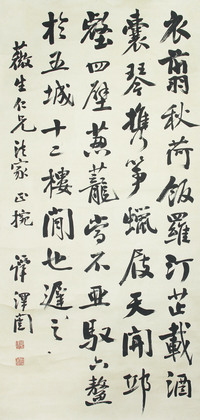 衣翦秋荷飯羅汀芷載酒
囊琴携笻蠟屐天開邱
壑四壁蔥蘢當不亞馭六鼇
於五城十二樓間也遲之
薇生仁兄法家正捥
譚澤闓